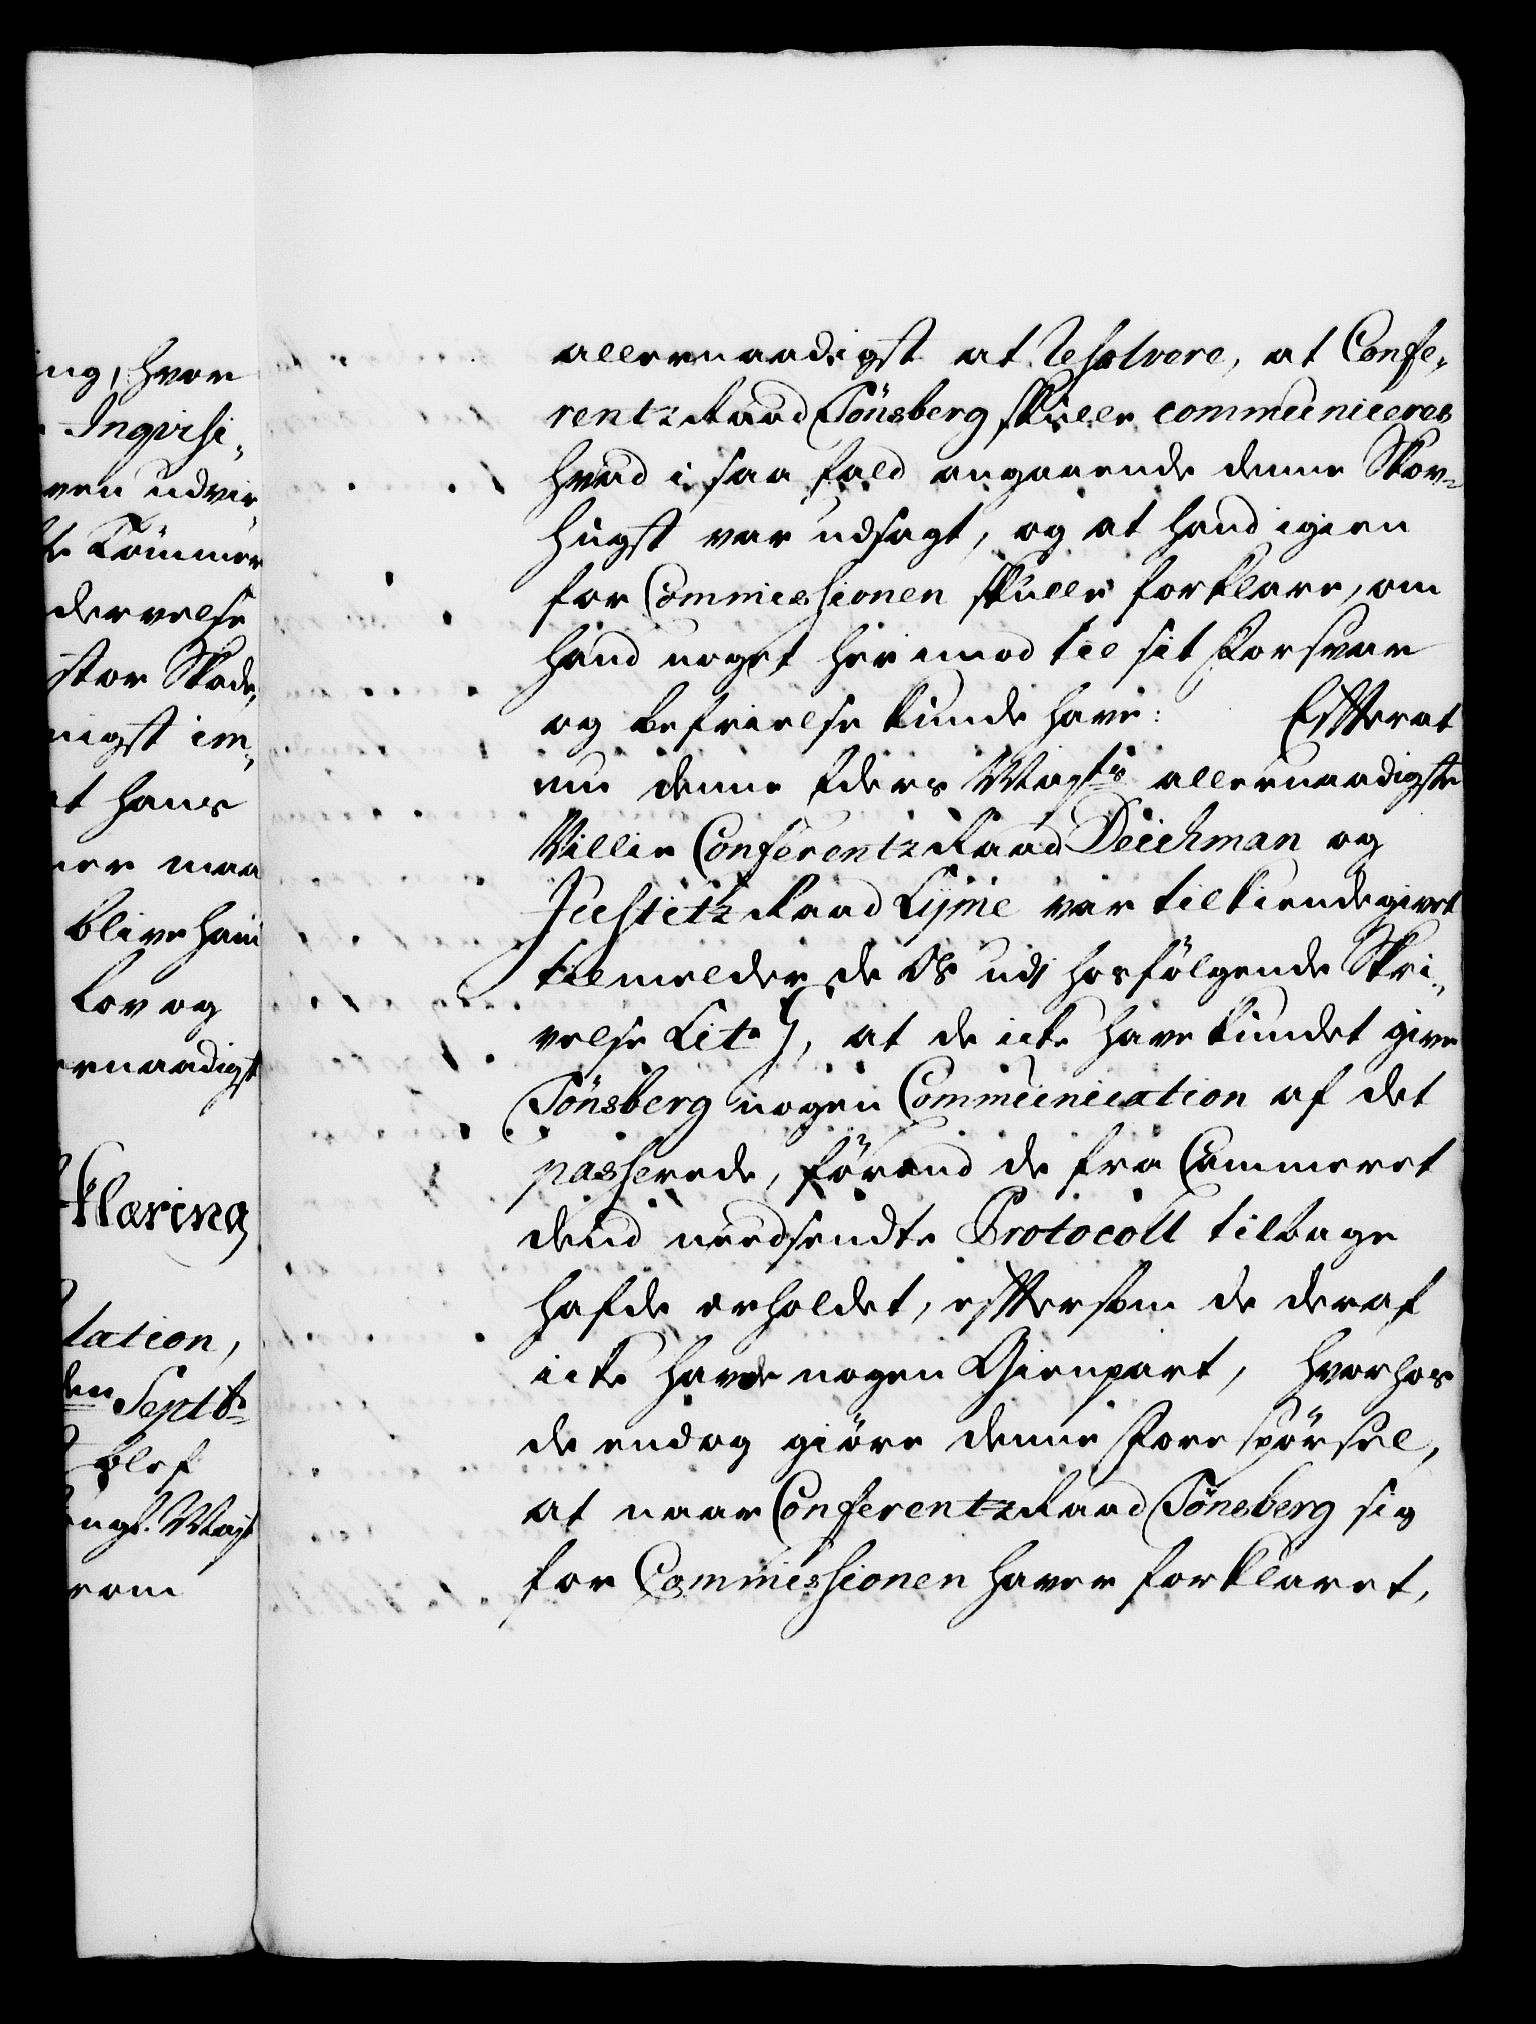 ng, hvor
Inqvisi-
ven udvir
te Tömmer
dervelse
stor Skade,
nigst im-
t hans
ner maa
blive ham
Lov og
ernaadigst
klæring
tation,
den Septbr
blef
ngl. Mayt
rom
allernaadigst at Resolvere, at Confe-
rentz Raad Tönsberg skulle communiceres
hvad i saa fald angaaende denne Skov-
hugst var udsagt, og at hand igien
for Commissionen skulle forklare, om
hand noget her imod til sit Forsvar
og befrielse kunde have: Efterat
nu denne Eders Mayts allernaadigste
Villie Conferentz Raad Deichman og
Justitz Raad Lyme var tilkiendegivet
tilmelder de Os udj hosfölgende Skri-
velse Lit. , at de icke have kundet give
Tönsberg nogen Communication af det
passerede, förend de fra Cammeret
dend nedsendte Protocoll tilbage
hafde erholdet, eftersom de deraf
icke havde nogen Gienpart, hvorhos
de endog giöre denne Forespörsel,
at naar Conferentz Raad Tönsberg sig
for Commissionen haver forklaret,